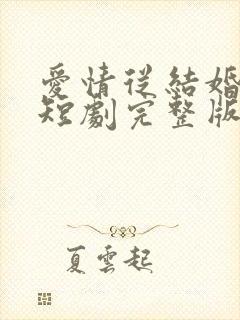 愛情從結婚
短劇完整版
夏雲起